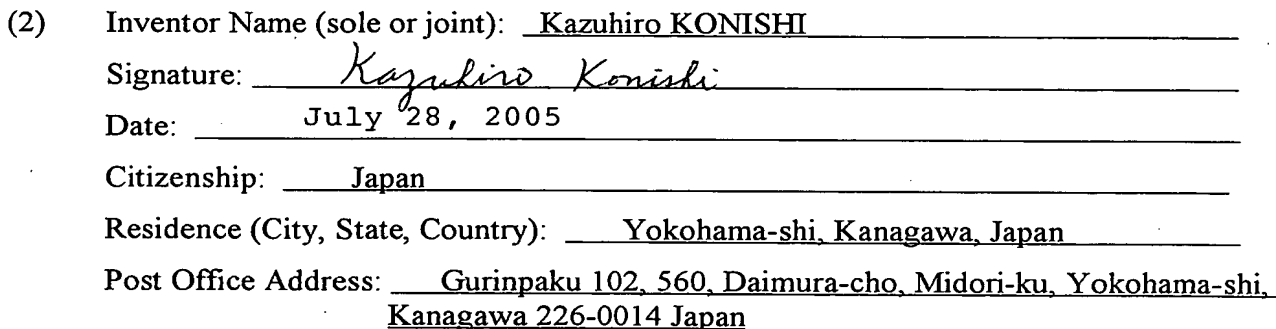 (2) Inventor Name (sole or joint): Kazuhiro KONISHI
Signature: Kazuhiro Konishi
Date: July 28, 2005
Citizenship: Japan
Residence (City, State, Country): Yokohama-shi, Kanagawa, Japan
Post Office Address: Gurinpaku 102, 560, Daimura-cho, Midori-ku, Yokohama-shi,
Kanagawa 226-0014 Japan